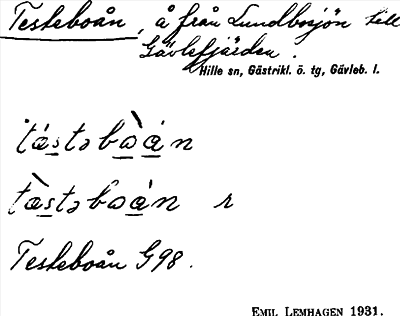 Testeboån, å från Lundbosjön till
Gävlefjärden.
Hille sn, Gästrikl. ö. tg, Gävleb. l.
tæ̀stəbòån
tæ̀stəboån r
Testeboån G98.
EMIL LEMHAGEN 1931.